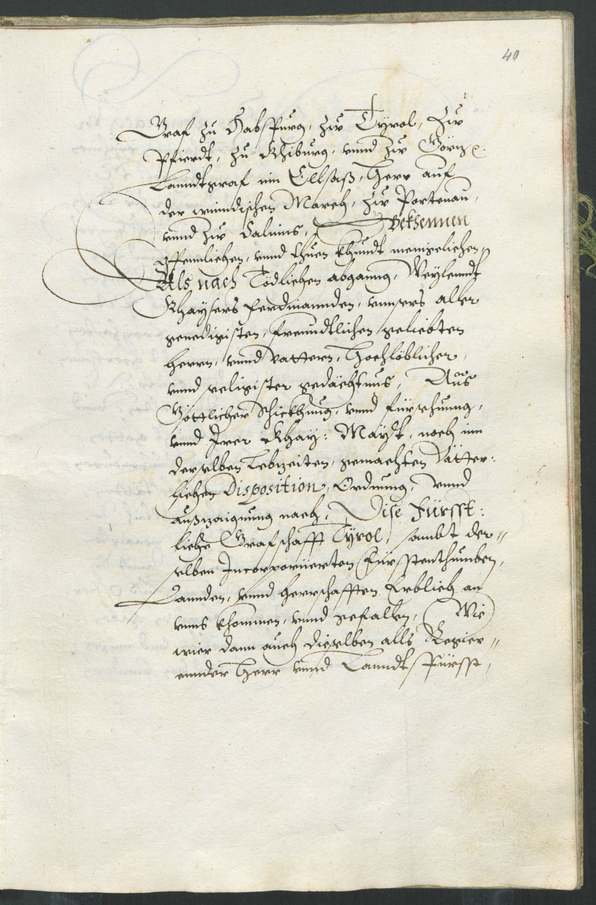 40
Graf zu Habspurg, zur Tyrol, zur
Pfierdt, zu Khiburg, vnnd zur Görz,
Lanndtgraf im Ellsaß, Herr auf
der windischen March, zur Portenau,
vnnd zur Salnins, Bekhennen
offennlichen, vnnd thuen khundt menigelichen,
Als nach Tödtlichen abganng, Weylenndt
Khaysers Ferdinannden, vnnsers aller
genedigisten, freundtlichen geliebten
Herrn, vnnd vattern, Hochlöblicher,
vnnd seligister gedächtnus, Aus
Göttlicher schickhung, vnnd fürsehung,
vnnd Irer Khay: Mayst, noch im
derselben Lebzeiten, gemachten Vätter:
lichen Disposition, Ordnung, vnnd
außzaigung nach, Dise Fürsst:
liche Grafschafft Tyrol, sambt der-
selben Incorporierten Fürsstenthumben,
Lannden, vnnd Herrschafften Erblich an
vnns khommen, vnnd gefallen, Wie
wier dann auch dieselben alls Regier-
ennder Herr vnnd Lanndtsfürsst,